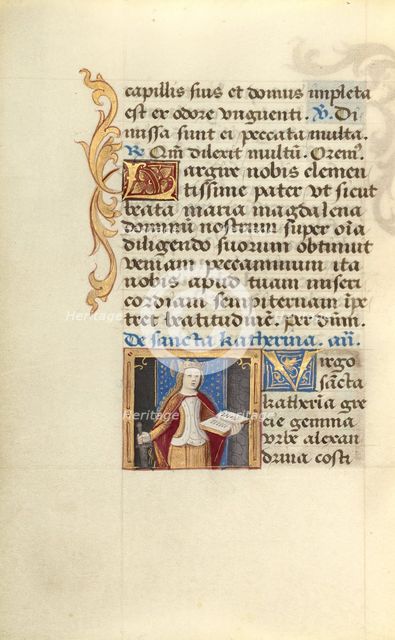 capillis suis et domus impleta
est ex odore unguenti. V. Di
missa sunt ei peccata multa.
R. Qm̄ dilexit multū. Oremꝰ.
Largire nobis clemen
tissime pater ut sicut
beata maria magdalena
domnū nostrum super oīa
diligendo suorum obtinuit
veniam peccaminum ita
nobis apud tuam miseri
cordiam sempiternam īpe
tret beatitudinē. per dūm.
De sancta katherina. añ.
Virgo
sācta
katherīa gre
cie gemma
urbe alexan
drina costi
Heritage
Heritage
Heritage
Heritage